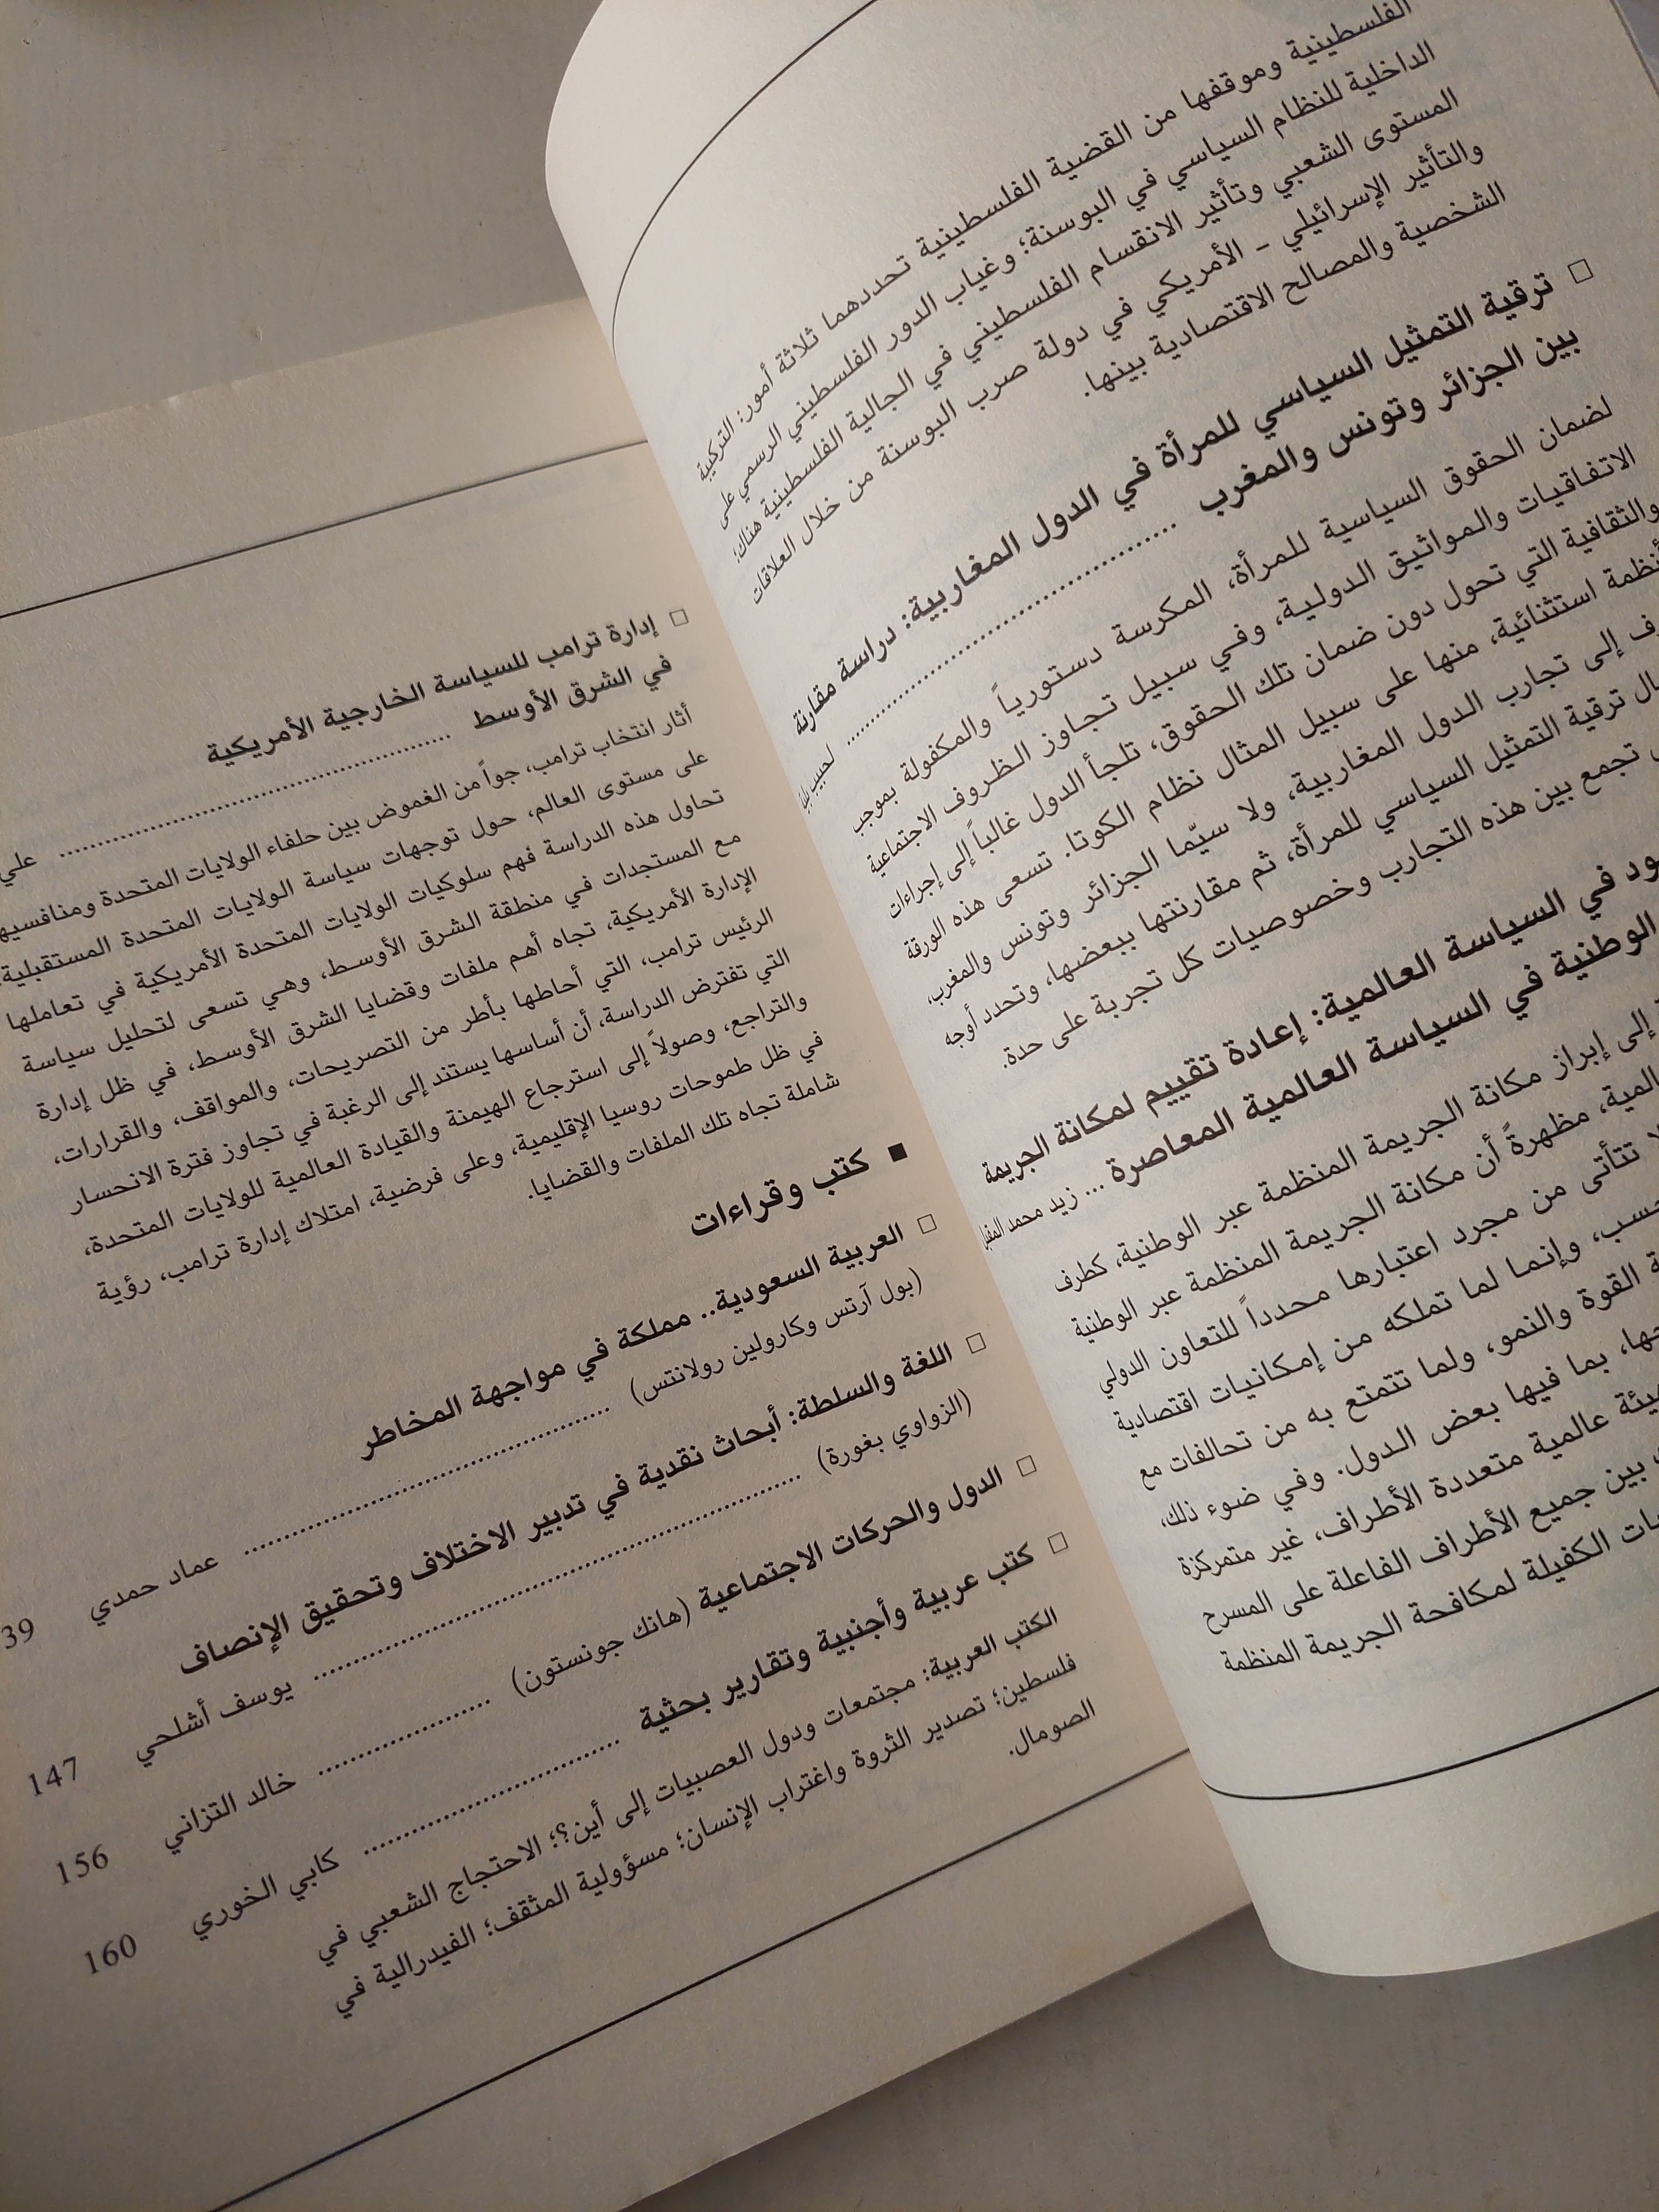 الفلسطينية وموقفها من القضية الفلسطينية تحددهما ثلاثة أمور: التركيبة
الداخلية للنظام السياسي في البوسنة؛ وغياب الدور الفلسطيني الرسمي على
المستوى الشعبي وتأثير الانقسام الفلسطيني في الجالية الفلسطينية هناك؛
والتأثير الإسرائيلي - الأمريكي في دولة صرب البوسنة من خلال العلاقات
الشخصية والمصالح الاقتصادية بينها.
□ ترقية التمثيل السياسي للمرأة في الدول المغاربية: دراسة مقارنة
بين الجزائر وتونس والمغرب ........................ لحبيب
لضمان الحقوق السياسية للمرأة، المكرسة دستورياً والمكفولة بموجب
الاتفاقيات والمواثيق الدولية، وفي سبيل تجاوز الظروف الاجتماعية
والثقافية التي تحول دون ضمان تلك الحقوق، تلجأ الدول غالباً إلى إجراءات
استثنائية، منها على سبيل المثال نظام الكوتا. تسعى هذه الورقة
إلى تجارب الدول المغاربية، ولا سيّما الجزائر وتونس والمغرب،
ترقية التمثيل السياسي للمرأة، ثم مقارنتها ببعضها، وتحدد أوجه
تجمع بين هذه التجارب وخصوصيات كل تجربة على حدة.
في السياسة العالمية: إعادة تقييم لمكانة الجريمة
الوطنية في السياسة العالمية المعاصرة ... زيد محمد
إلى إبراز مكانة الجريمة المنظمة عبر الوطنية، كطرف
مظهرةً أن مكانة الجريمة المنظمة عبر الوطنية
تتأتى من مجرد اعتبارها محدداً للتعاون الدولي
وإنما لما تملكه من إمكانيات اقتصادية
القوة والنمو، ولما تتمتع به من تحالفات مع
بما فيها بعض الدول. وفي ضوء ذلك،
عالمية متعددة الأطراف، غير متمركزة
بين جميع الأطراف الفاعلة على المسرح
الكفيلة لمكافحة الجريمة المنظمة
□ إدارة ترامب للسياسة الخارجية الأمريكية
في الشرق الأوسط ........................ علي
أثار انتخاب ترامب، جواً من الغموض بين حلفاء الولايات المتحدة ومنافسيها
على مستوى العالم، حول توجهات سياسة الولايات المتحدة المستقبلية.
تحاول هذه الدراسة فهم سلوكيات الولايات المتحدة الأمريكية في تعاملها
مع المستجدات في منطقة الشرق الأوسط، وهي تسعى لتحليل سياسة
الإدارة الأمريكية، تجاه أهم ملفات وقضايا الشرق الأوسط، في ظل إدارة
الرئيس ترامب، التي أحاطها بأطر من التصريحات، والمواقف، والقرارات،
التي تفترض الدراسة، أن أساسها يستند إلى الرغبة في تجاوز فترة الانحسار
والتراجع، وصولاً إلى استرجاع الهيمنة والقيادة العالمية للولايات المتحدة،
في ظل طموحات روسيا الإقليمية، وعلى فرضية، امتلاك إدارة ترامب، رؤية
شاملة تجاه تلك الملفات والقضايا.
■ كتب وقراءات
□ العربية السعودية.. مملكة في مواجهة المخاطر
(بول آرتس وكارولين رولانتس) ........................ عماد حمدي 39
□ اللغة والسلطة: أبحاث نقدية في تدبير الاختلاف وتحقيق الإنصاف
(الزواوي بغورة) ........................ يوسف أشلحي 147
□ الدول والحركات الاجتماعية (هانك جونستون) ............ خالد التزاني 156
□ كتب عربية وأجنبية وتقارير بحثية ............ كابي الخوري 160
الكتب العربية: مجتمعات ودول العصبيات إلى أين؟؛ الاحتجاج الشعبي في
فلسطين؛ تصدير الثروة واغتراب الإنسان؛ مسؤولية المثقف؛ الفيدرالية في
الصومال.